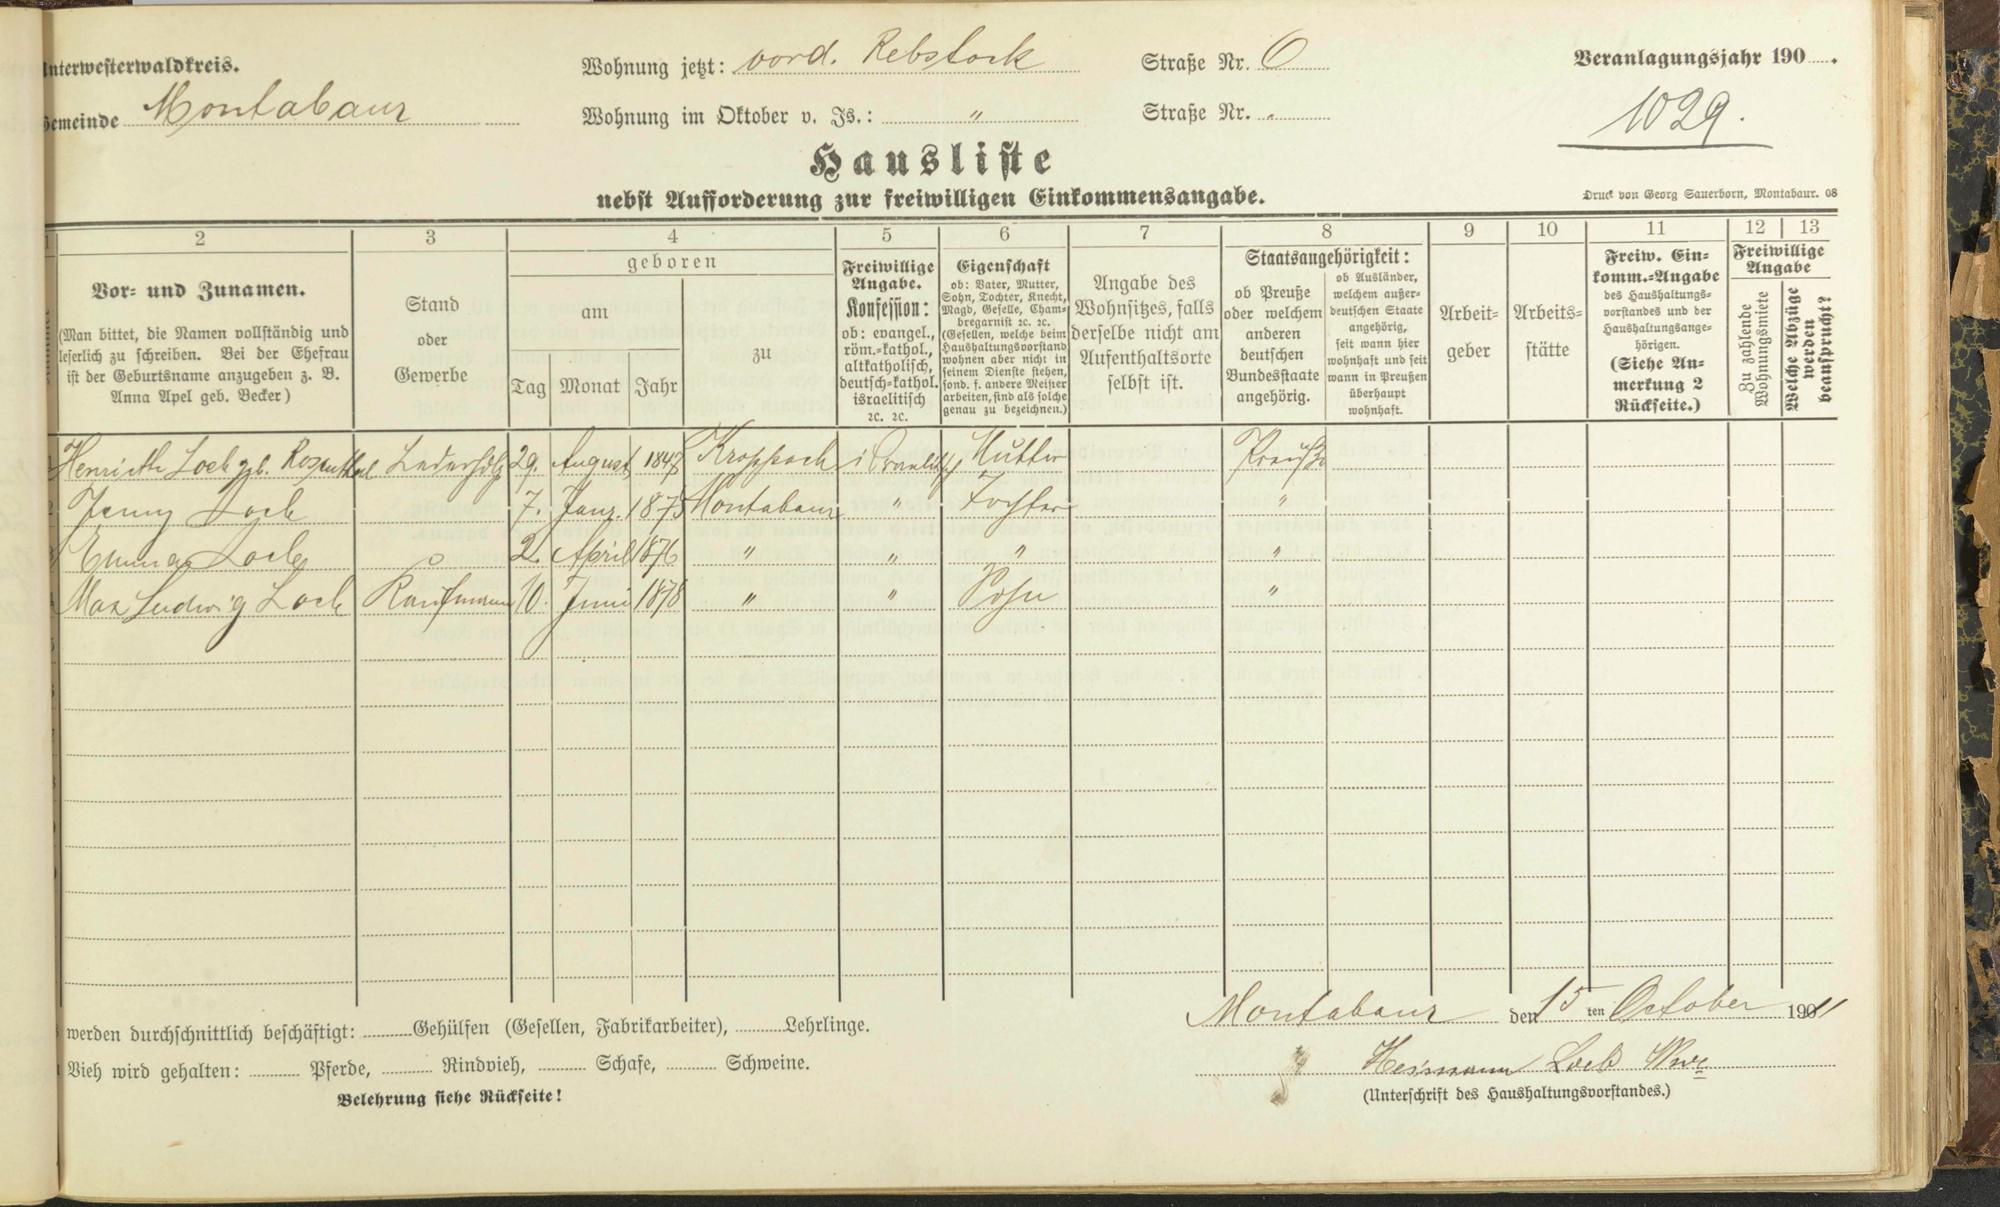 Unterwesterwaldkreis.
Wohnung jetzt: vord. Rebstock Straße Nr. 6
Veranlagungsjahr 190 .
Gemeinde Montabaur
Wohnung im Oktober v. Js.: " Straße Nr. "
1029.
Hausliste
nebst Aufforderung zur freiwilligen Einkommensangabe.
Druck von Georg Sauerborn, Montabaur. 08
1 2 3 4 5 6 7 8 9 10 11 12 13
Vor- und Zunamen.
(Man bittet, die Namen vollständig und
leserlich zu schreiben. Bei der Ehefrau
ist der Geburtsname anzugeben z. B.
Anna Apel geb. Becker)
Stand
oder
Gewerbe
geboren
am
Tag Monat Jahr
zu
Freiwillige
Angabe.
Konfession:
ob: evangel.,
röm.-kathol.,
altkatholisch,
deutsch-kathol.
israelitisch
ꝛc. ꝛc.
Eigenschaft
ob: Vater, Mutter,
Sohn, Tochter, Knecht,
Magd, Geselle, Cham-
bregarnist ꝛc. ꝛc.
(Gesellen, welche beim
Haushaltungsvorstand
wohnen aber nicht in
seinem Dienste stehen,
sond. f. andere Meister
arbeiten, sind als solche
genau zu bezeichnen.)
Angabe des
Wohnsitzes, falls
derselbe nicht am
Aufenthaltsorte
selbst ist.
Staatsangehörigkeit:
ob Preuße
oder welchem
anderen
deutschen
Bundesstaate
angehörig.
ob Ausländer,
welchem außer-
deutschen Staate
angehörig,
seit wann hier
wohnhaft und seit
wann in Preußen
überhaupt
wohnhaft.
Arbeit-
geber
Arbeits-
stätte
Freiw. Ein-
komm.-Angabe
des Haushaltungs-
vorstandes und der
Haushaltungsange-
hörigen.
(Siehe An-
merkung 2
Rückseite.)
Freiwillige
Angabe
Zu zahlende
Wohnungsmiete
Welche Abzüge
werden
gewünscht?
1 Henriette Loeb geb. Rosenthal 29. August 1847 Kroppach israelitisch Mutter Preuße
2 Jenny Loeb 7. Janr. 1875 Montabaur " Tochter "
3 Emma Loeb 2. April 1876 " " " "
4 Max Ludwig Loeb Kaufmann 10. Juni 1878 " " Sohn "
werden durchschnittlich beschäftigt: Gehülfen (Gesellen, Fabrikarbeiter), Lehrlinge.
Vieh wird gehalten: Pferde, Rindvieh, Schafe, Schweine.
Belehrung siehe Rückseite!
Montabaur den 15 ten October 1911
Heimann Loeb Wwe
(Unterschrift des Haushaltungsvorstandes.)